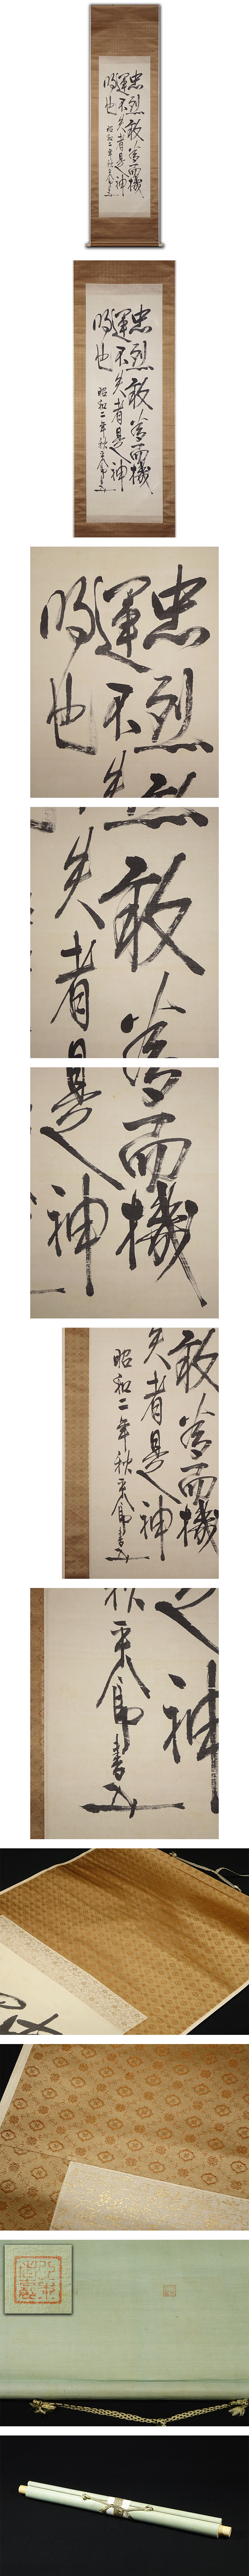 忠烈敢為而機
運不失者是神
明也
昭和二年秋平八郎書